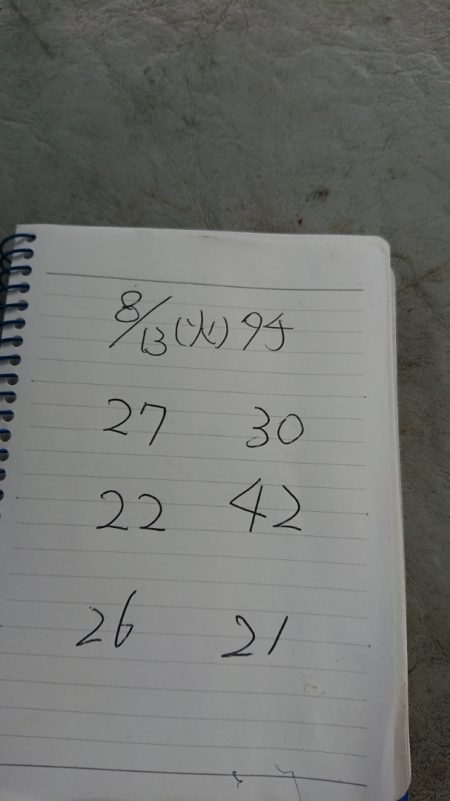 8/13(火)9時
27 30
22 42
26 21